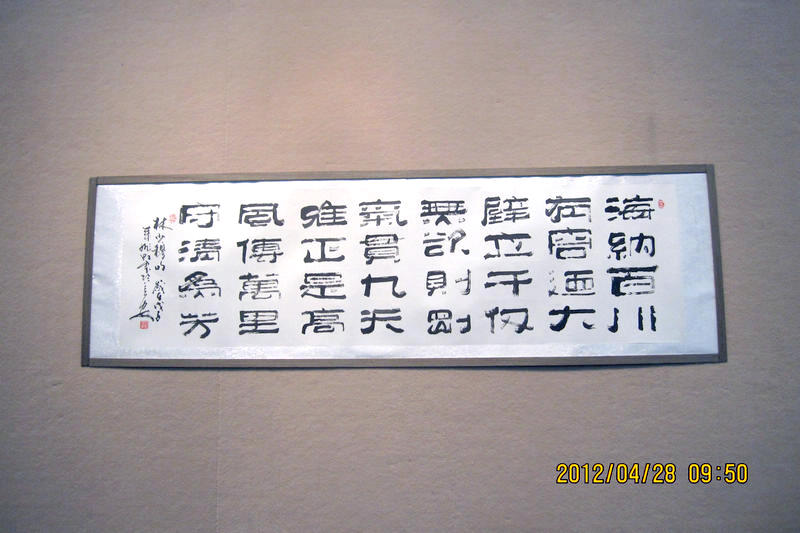 海納百川
有容迺大
壁立千仞
無欲則剛
氣貫九天
唯正是高
風傳萬里
守清為芳
林少穆
2012/04/28 09:50